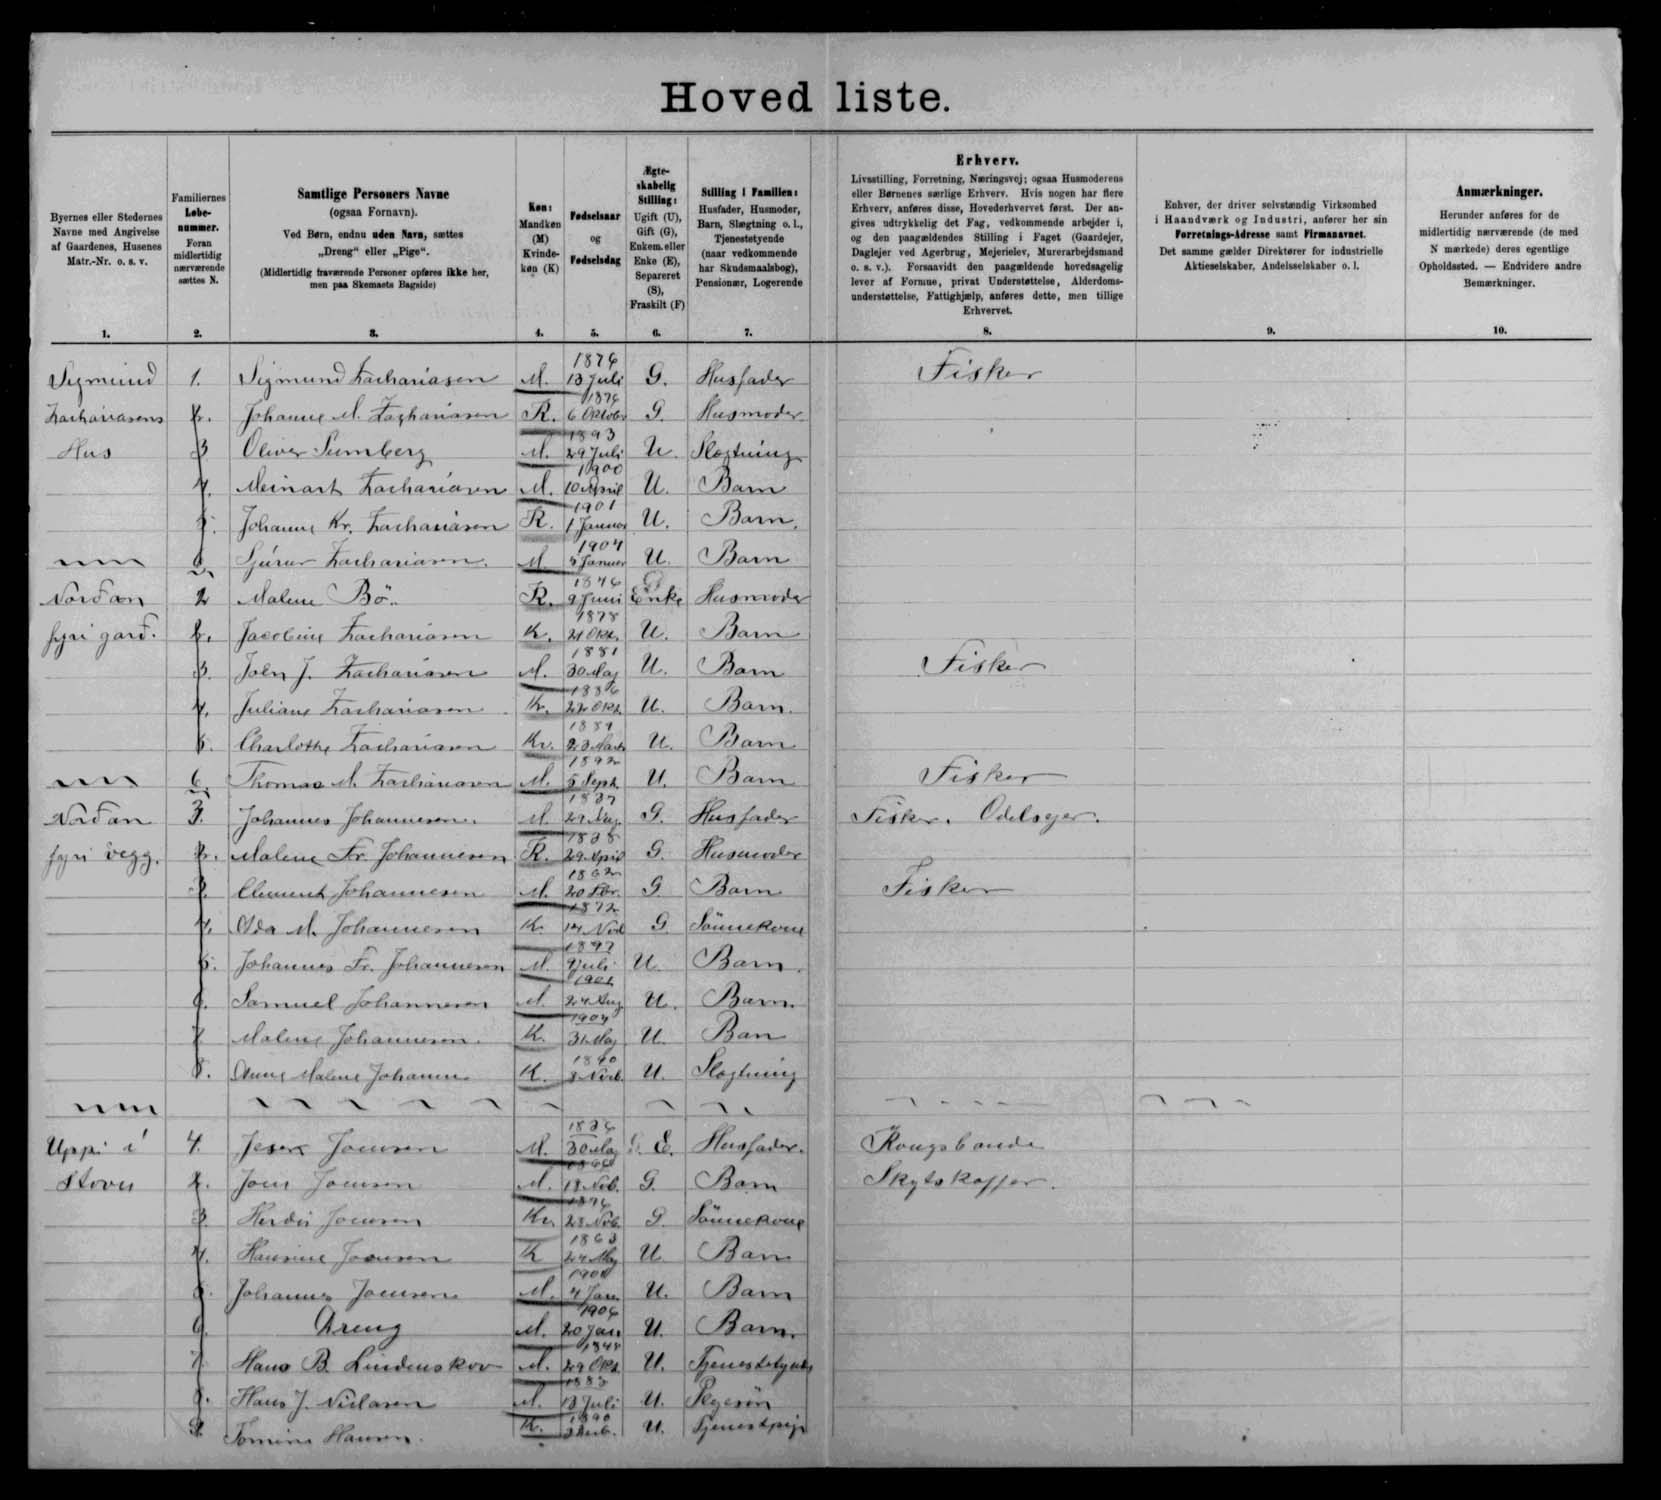 Hoved liste.
Byernes eller Stedernes Navne med Angivelse af Gaardenes, Husenes Matr.-Nr. o. s. v.
Familiernes Løbe-nummer. Foran midlertidig nærværende sættes N.
Samtlige Personers Navne
(ogsaa Fornavn).
Ved Børn, endnu uden Navn, sættes „Dreng“ eller „Pige“.
(Midlertidig fraværende Personer opføres ikke her, men paa Skemaets Bagside)
Køn: Mandkøn (M) Kvinde-køn (K)
Fødselsaar og Fødselsdag
Ægte-skabelig Stilling: Ugift (U), Gift (G), Enkem. eller Enke (E), Separeret (S), Fraskilt (F)
Stilling i Familien: Husfader, Husmoder, Barn, Slægtning o. l., Tjenestetyende (naar vedkommende har Skudsmaalsbog), Pensionær, Logerende
Erhverv.
Livsstilling, Forretning, Næringsvej; ogsaa Husmoderens eller Børnenes særlige Erhverv. Hvis nogen har flere Erhverv, anføres disse, Hovederhvervet først. Der angives udtrykkelig det Fag, vedkommende arbejder i, og den paagældendes Stilling i Faget (Gaardejer, Daglejer ved Agerbrug, Mejerielev, Murerarbejdsmand o. s. v.). Forsaavidt den paagældende hovedsagelig lever af Formue, privat Understøttelse, Alderdoms-understøttelse, Fattighjælp, anføres dette, men tillige Erhvervet.
Enhver, der driver selvstændig Virksomhed i Haandværk og Industri, anfører her sin Forretnings-Adresse samt Firmanavnet.
Det samme gælder Direktører for industrielle Aktieselskaber, Andelsselskaber o. l.
Anmærkninger.
Herunder anføres for de midlertidig nærværende (de med N mærkede) deres egentlige Opholdssted. — Endvidere andre Bemærkninger.
1. 2. 3. 4. 5. 6. 7. 8. 9. 10.
Sigmund 1. Sigmund Zachariasen M. 13 Juli G. Husfader Fisker
Zachariasens 2. Johanne M. Zachariasen K. 6 Oktober G. Husmoder
Hus 3 Oliver Sumberg M. 1893 29 Juli U. Slægtning
4. Meinart Zachariasen M. 1900 10 April U. Barn
5. Johanne Kr. Zachariasen K. 1901 1 Januar U. Barn.
6 Sjúrur Zachariasen. M 1904 5 Januar U. Barn
Nordan 2 Malene Bö.. K. 1846 9 Juni Enke Husmoder
fyri gard. 2. Jacobine Zachariasen K. 1878 21 Okt. U. Barn
3. John J. Zachariasen M. 1881 30 Maj U. Barn Fisker
4. Juliane Zachariasen K. 22 Okt. U. Barn.
5. Charlotte Zachariasen Kv. 1889 23 Marts U. Barn
6. Thomas M. Zachariasen M. 1892 5 Sept. U. Barn Fisker
Nordan 3. Johannes Johannesen. M. 1837 29 Aug. G. Husfader Fisker. Odelsejer.
fyri vegg. 2. Malene Fr. Johannesen K. 1838 29 April G. Husmoder
3. Clement Johannesen M. 1862 20 Febr. G. Barn Fisker
4. Ida M. Johannesen K. 1872 14 Nov. G. Sönnekone
5. Johannes Fr. Johannesen M. 1897 9 Juli U. Barn.
6. Samuel Johannesen M. 1901 24 Aug U. Barn.
7. Malene Johannesen. K. 1904 31 Maj U. Barn
8. Anne Malene Johannes K. 1890 8 Novb. U. Slægtning
Uppi i 4. Joensen M. 30 Maj E. Husfader. Kongsbonde
Stovu 2. Joen Joensen M. 18 Nvb. G. Barn Skytskaffer.
3. Herdis Joensen Kv. 1876 28 Nvb. G. Sönnekone
4. Hansine Joensen K 1863 24 Maj U. Barn
5. Johannes Joensen M. 4 Jan. U. Barn
6. Dreng M. 1906 20 Jan U. Barn.
7. Hans B. Lindenskov M. 1848 29 Okt. U. Tjenestetyende
8. Hans J. Niclasen M. 1883 13 Juli U. Plejesön
9. Hansen. K. 1890 U. Tjenestpige